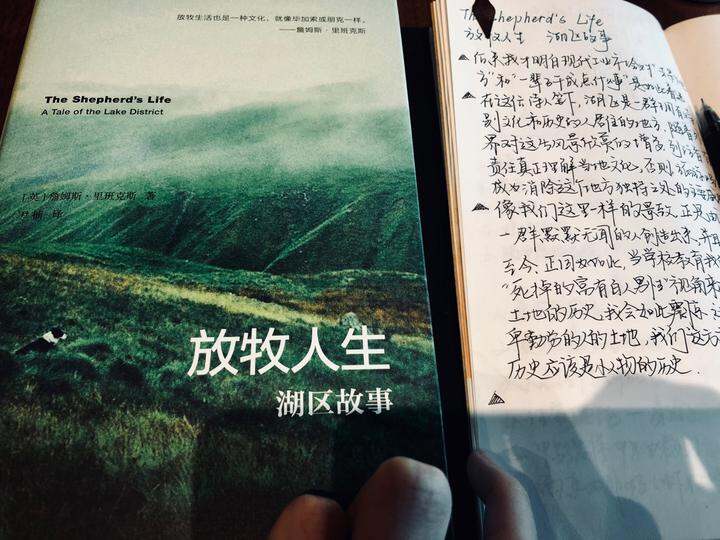 放牧生活也是一种文化，就像毕加索或朋克一样。
——詹姆斯·里班克斯
The Shepherd's Life
A Tale of the Lake District
[英] 詹姆斯·里班克斯 著
尹楠 译
放牧人生
湖区故事
The Shepherd's Life
放牧人生 湖区故事
后来我才明白现代工业社会对
方"和"一辈子干成点什么事"是如此
在这位诗人笔下，湖区是一群拥有
别文化和历史的人居住的地方，随着
界对这出风景欣赏的增多，到访者
责任真正理解当地文化，否则
成为消除这个地方独特之处的
像我们这里一样的景致，正是由
一群默默无闻的人创造出来，并
至今，正因如此，当学校教育我
"死掉的富有白人男性"视角来
土地的历史，我会如此震惊，这
卑勤劳的人的土地，我们这方
历史应该是小人物的历史.